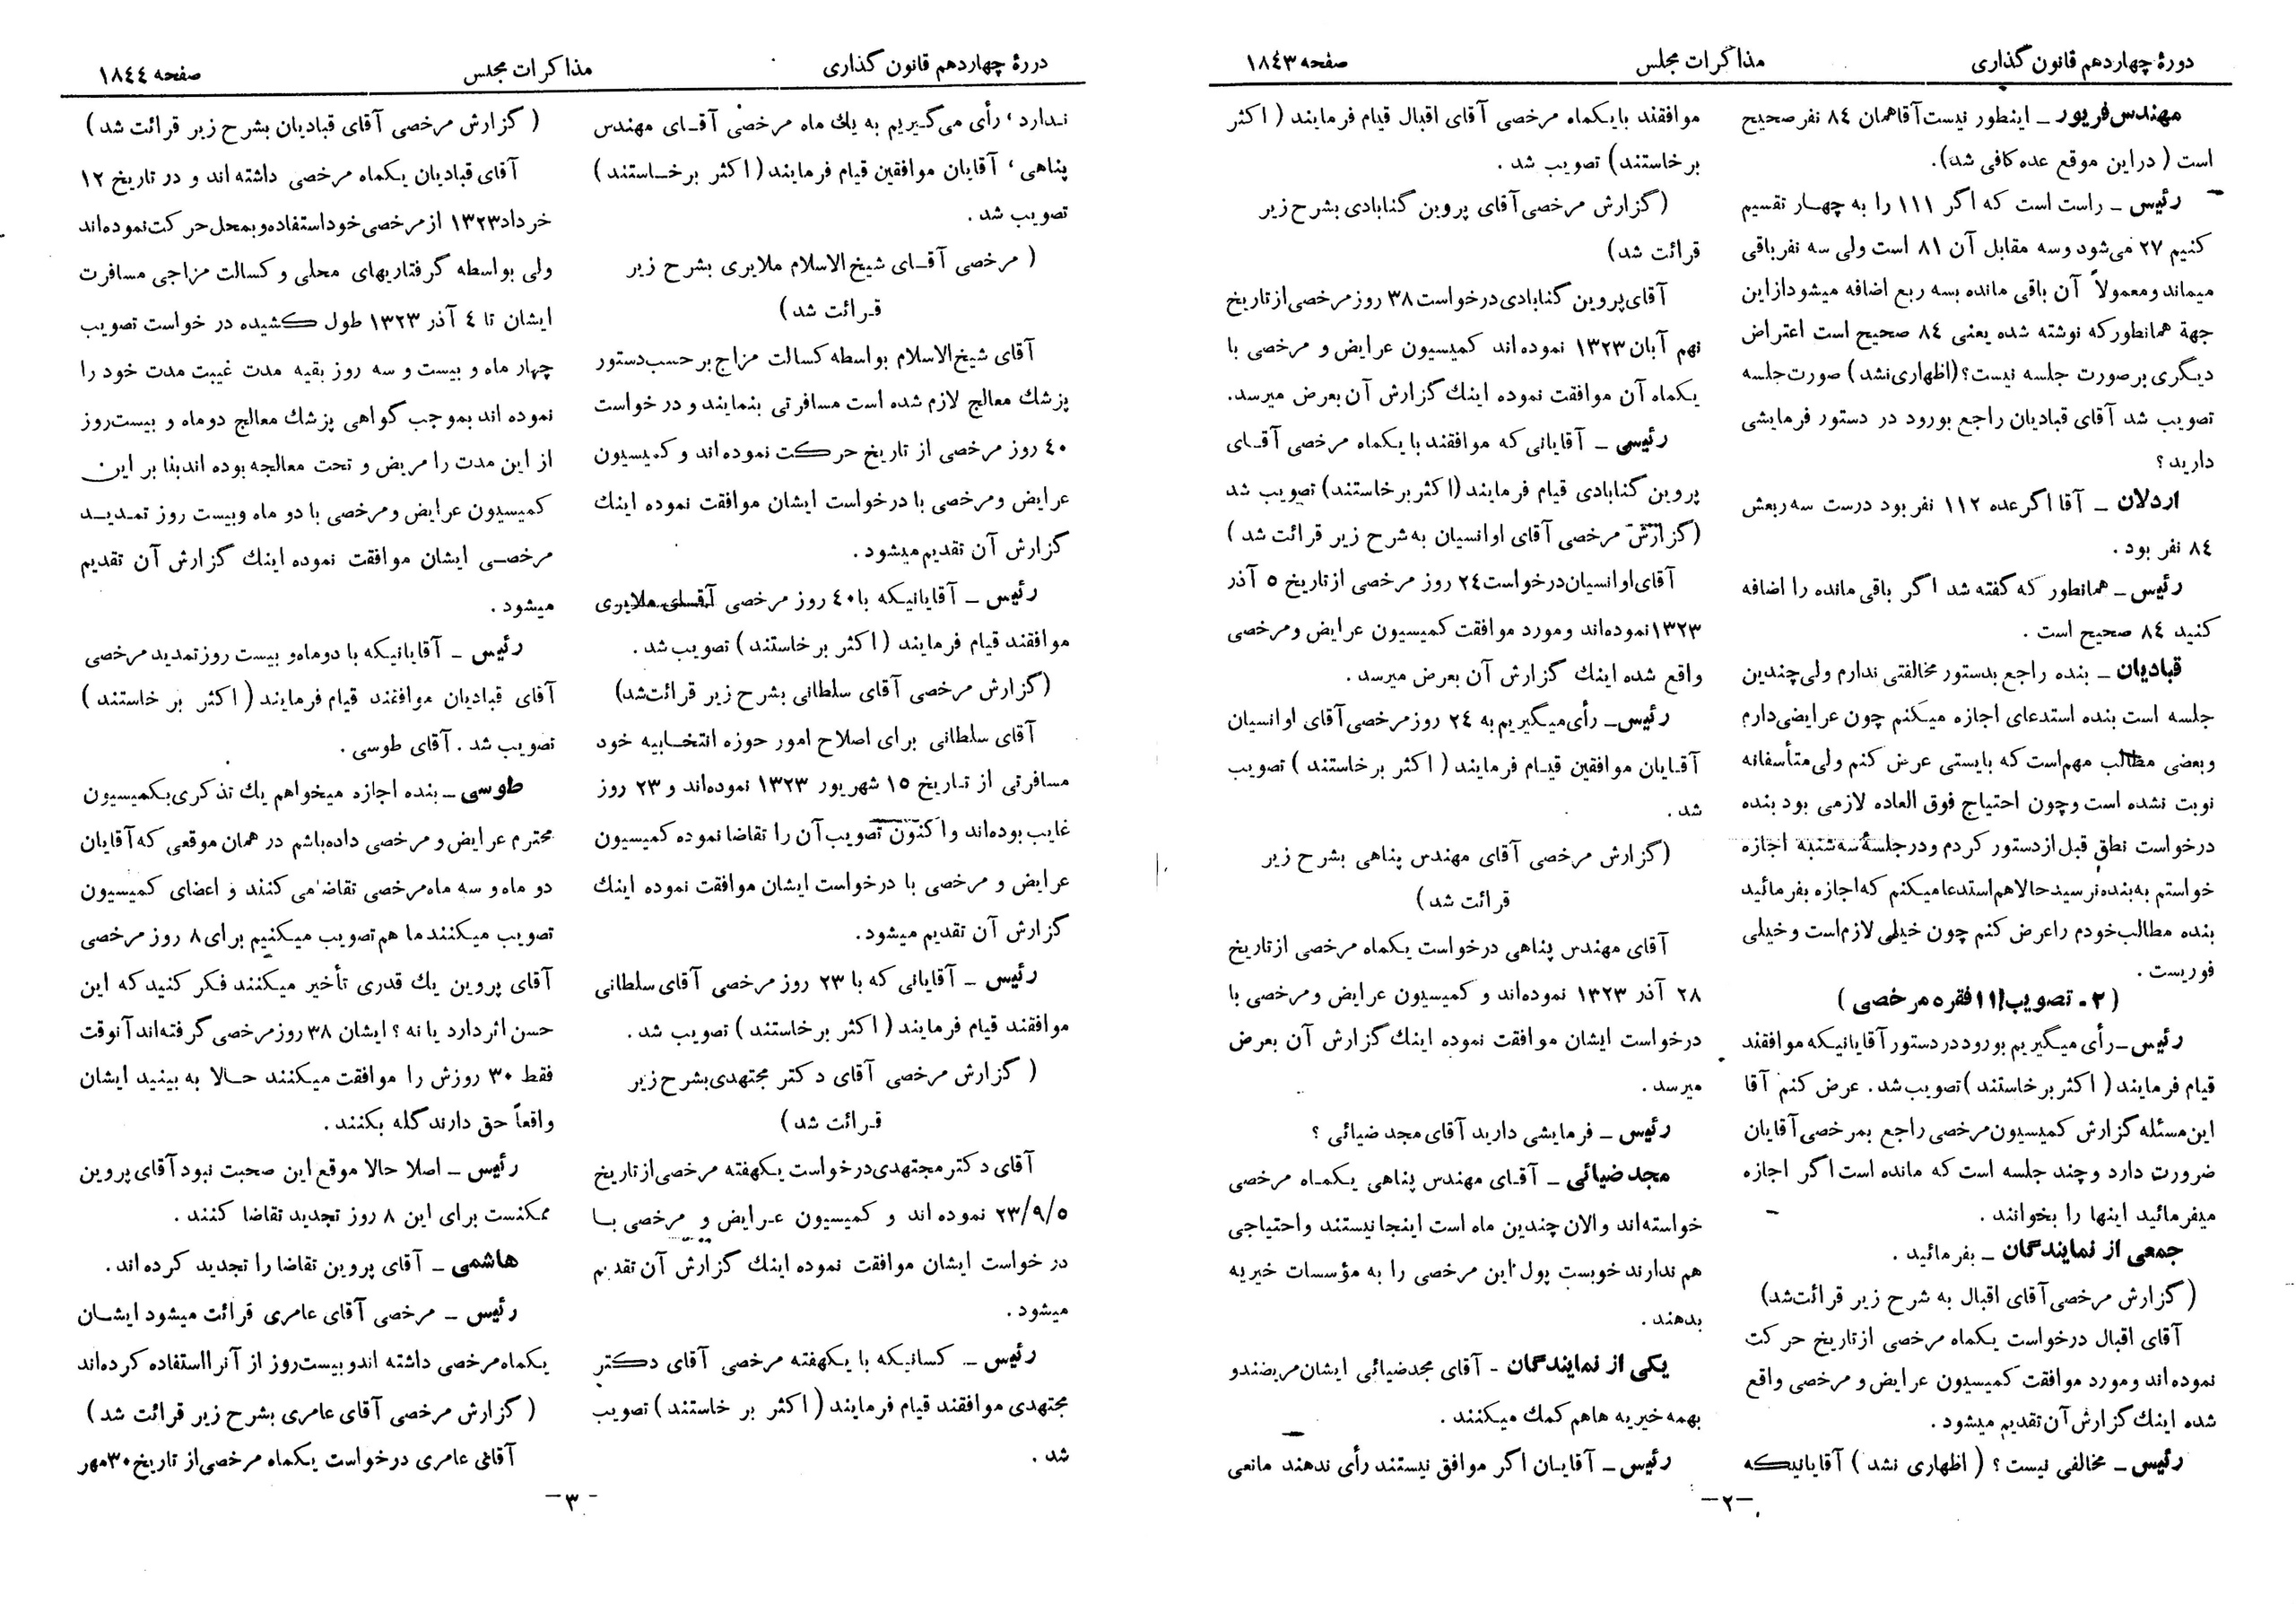 دورهٔ چهاردهم قانون گذاری
مذاکرات مجلس
صفحه ۱۸٤۳
مهندس فریور ــ اینطور نیست آقا همان ۸٤ نفر صحیح
است ( در این موقع عده کافی شد).
رئیس ــ راست است که اگر ۱۱۱ را به چهـار تقسیم
کنیم ۲۷ می‌شود و سه مقابل آن ۸۱ است ولی سه نفر باقی
میماند و معمولاً آن باقی مانده بسه ربع اضافه میشود از این
جهة همانطور که نوشته شده یعنی ۸٤ صحیح است اعتراض
دیگری بر صورت جلسه نیست؟ (اظهاری نشد ) صورت جلسه
تصویب شد آقای قبادیان راجع بورود در دستور فرمایشی
دارید ؟
اردلان ــ آقا اگر عده ۱۱۲ نفر بود درست سه ربعش
۸٤ نفر بود .
رئیس ــ همانطور که گفته شد اگر باقی مانده را اضافه
کنید ۸٤ صحیح است .
قبادیان ــ بنده راجع بدستور مخالفتی ندارم ولی چندین
جلسه است بنده استدعای اجازه میکنم چون عرایضی دارم
و بعضی مطالب مهم است که بایستی عرض کنم ولی متأسفانه
نوبت نشده است و چون احتیاج فوق العاده لازمی بود بنده
درخواست نطق قبل از دستور کردم و در جلسهٔ سه شنبه اجازه
خواستم به بنده نرسید حالا هم استدعا میکنم که اجازه بفرمائید
بنده مطالب خودم را عرض کنم چون خیلی لازم است و خیلی
فوریست .
( ۲ـ تصویب ۱۱ فقره مرخصی )
رئیس ــ رأی میگیریم بورود در دستور آقایانیکه موافقند
قیام فرمایند ( اکثر برخاستند ) تصویب شد . عرض کنم آقا
این مسئله گزارش کمیسیون مرخصی راجع بمرخصی آقایان
ضرورت دارد و چند جلسه است که مانده است اگر اجازه
میفرمائید اینها را بخوانند .
جمعی از نمایندگان ــ بفرمائید .
( گزارش مرخصی آقای اقبال به شرح زیر قرائت شد)
آقای اقبال درخواست یکماه مرخصی از تاریخ حرکت
نموده اند و مورد موافقت کمیسیون عرایض و مرخصی واقع
شده اینك گزارش آن تقدیم میشود .
رئیس ــ مخالفی نیست ؟ ( اظهاری نشد ) آقایانیکه
موافقند بایکماه مرخصی آقای اقبال قیام فرمایند ( اکثر
برخاستند) تصویب شد .
(گزارش مرخصی آقای پروین گنابادی بشرح زیر
قرائت شد)
آقای پروین گنابادی درخواست ۳۸ روز مرخصی از تاریخ
نهم آبان ۱۳۲۳ نموده اند کمیسیون عرایض و مرخصی با
یکماه آن موافقت نموده اینك گزارش آن بعرض میرسد.
رئیس ــ آقایانی که موافقند با یکماه مرخصی آقـای
پروین گنابادی قیام فرمایند (اکثر برخاستند) تصویب شد
(گزارش مرخصی آقای اوانسیان به شرح زیر قرائت شد )
آقای اوانسیان درخواست ۲٤ روز مرخصی از تاریخ ٥ آذر
۱۳۲۳ نموده‌اند و مورد موافقت کمیسیون عرایض و مرخصی
واقع شده اینك گزارش آن بعرض میرسد .
رئیس ــ رأی میگیریم به ۲٤ روز مرخصی آقای اوانسیان
آقـایان موافقین قیـام فرمایند ( اکثر برخاستند ) تصویب
شد .
(گزارش مرخصی آقای مهندس پناهی بشرح زیر
قرائت شد )
آقای مهندس پناهی درخواست یکماه مرخصی از تاریخ
۲۸ آذر ۱۳۲۳ نموده‌اند و کمیسیون عرایض و مرخصی با
درخواست ایشان موافقت نموده اینك گزارش آن بعرض
میرسد .
رئیس ــ فرمایشی دارید آقای مجد ضیائی ؟
مجد ضیائی ــ آقـای مهندس پناهی یکمـاه مرخصی
خواسته‌اند و الان چندین ماه است اینجا نیستند و احتیاجی
هم ندارند خوبست پول این مرخصی را به مؤسسات خیریه
بدهند .
یکی از نمایندگان ـ آقای مجد ضیائی ایشان مریضند و
بهمه خیریه ها هم کمك میکنند .
رئیس ــ آقایـان اگر موافق نیستند رأی ندهند مانعی
ـ۲ـ
دررهٔ چهاردهم قانون گذاری
مذاکرات مجلس
صفحه ۱۸٤٤
نـدارد ، رأی می‌گـیریم به یك ماه مرخصی آقـای مهندس
پناهی ، آقایان موافقین قیام فرمایند ( اکثر برخـاستند )
تصویب شد .
( مرخصی آقـای شیخ الاسلام ملایری بشرح زیر
قـرائت شد )
آقای شیخ الاسلام بواسطه کسالت مزاج بر حسب دستور
پزشك معالج لازم شده است مسافرتی بنمایند و درخواست
٤۰ روز مرخصی از تاریخ حرکت نموده اند و کمیسیون
عرایض و مرخصی با درخواست ایشان موافقت نموده اینك
گزارش آن تقدیم میشود .
رئیس ــ آقایانیکه با ٤۰ روز مرخصی آقـای ملایری
موافقند قیام فرمایند ( اکثر برخاستند ) تصویب شد .
(گزارش مرخصی آقای سلطانی بشرح زیر قرائت شد)
آقای سلطانی برای اصلاح امور حوزه انتخـابیه خود
مسافرتی از تـاریخ ۱٥ شهریور ۱۳۲۳ نموده‌اند و ۲۳ روز
غایب بوده‌اند و اکنون تصویب آن را تقاضا نموده کمیسیون
عرایض و مرخصی با درخواست ایشان موافقت نموده اینك
گزارش آن تقدیم میشود.
رئیس ــ آقایانی که با ۲۳ روز مرخصی آقای سلطانی
موافقند قیام فرمایند ( اکثر برخاستند ) تصویب شد .
( گزارش مرخصی آقای دکتر مجتهدی بشرح زیر
قـرائت شد )
آقای دکتر مجتهدی درخواست یکهفته مرخصی از تاریخ
۲۳/۹/٥ نموده اند و کمیسیون عـرایض و مرخصی بـا
درخواست ایشان موافقت نموده اینك گزارش آن تقدیم
میشود .
رئیس ــ کسانیکه با یکهفته مرخصی آقای دکتر
مجتهدی موافقند قیام فرمایند ( اکثر برخاستند ) تصویب
شد .
( گزارش مرخصی آقای قبادیان بشرح زیر قرائت شد )
آقای قبادیان یکماه مرخصی داشته اند و در تاریخ ۱۲
خرداد ۱۳۲۳ از مرخصی خود استفاده و بمحل حرکت نموده‌اند
ولی بواسطه گرفتاریهای محلی و کسالت مزاجی مسافرت
ایشان تا ٤ آذر ۱۳۲۳ طول کشیده درخواست تصویب
چهار ماه و بیست و سه روز بقیه مدت غیبت مدت خود را
نموده اند بموجب گواهی پزشك معالج دوماه و بیست روز
از این مدت را مریض و تحت معالجه بوده اند بنا بر این
کمیسیون عرایض و مرخصی با دو ماه و بیست روز تمـدیـد
مرخصـی ایشان موافقت نموده اینك گزارش آن تقدیم
میشود .
رئیس ــ آقایانیکه با دو ماه و بیست روز تمدید مرخصی
آقای قبادیان موافقند قیام فرمایند ( اکثر برخاستند )
تصویب شد . آقای طوسی .
طوسی ــ بنده اجازه میخواهم یك تذکری بکمیسیون
محترم عرایض و مرخصی داده باشم در همان موقعی که آقایان
دو ماه و سه ماه مرخصی تقاضا می کنند و اعضای کمیسیون
تصویب میکنند ما هم تصویب میکنیم برای ۸ روز مرخصی
آقای پروین یك قدری تأخیر میکنند فکر کنید که این
حسن اثر دارد یا نه ؟ ایشان ۳۸ روز مرخصی گرفته‌اند آنوقت
فقط ۳۰ روزش را موافقت میکنند حـالا به بینید ایشان
واقعاً حق دارند گله بکنند .
رئیس ــ اصلا حالا موقع این صحبت نبود آقای پروین
ممکنست برای این ۸ روز تجدید تقاضا کنند .
هاشمی ــ آقای پروین تقاضا را تجدید کرده اند .
رئیس ــ مرخصی آقای عامری قرائت میشود ایشـان
یکماه مرخصی داشته اند و بیست روز از آنرا استفاده کرده‌اند
( گزارش مرخصی آقای عامری بشرح زیر قرائت شد )
آقای عامری درخواست یکماه مرخصی از تاریخ ۳۰ مهر
ـ۳ـ